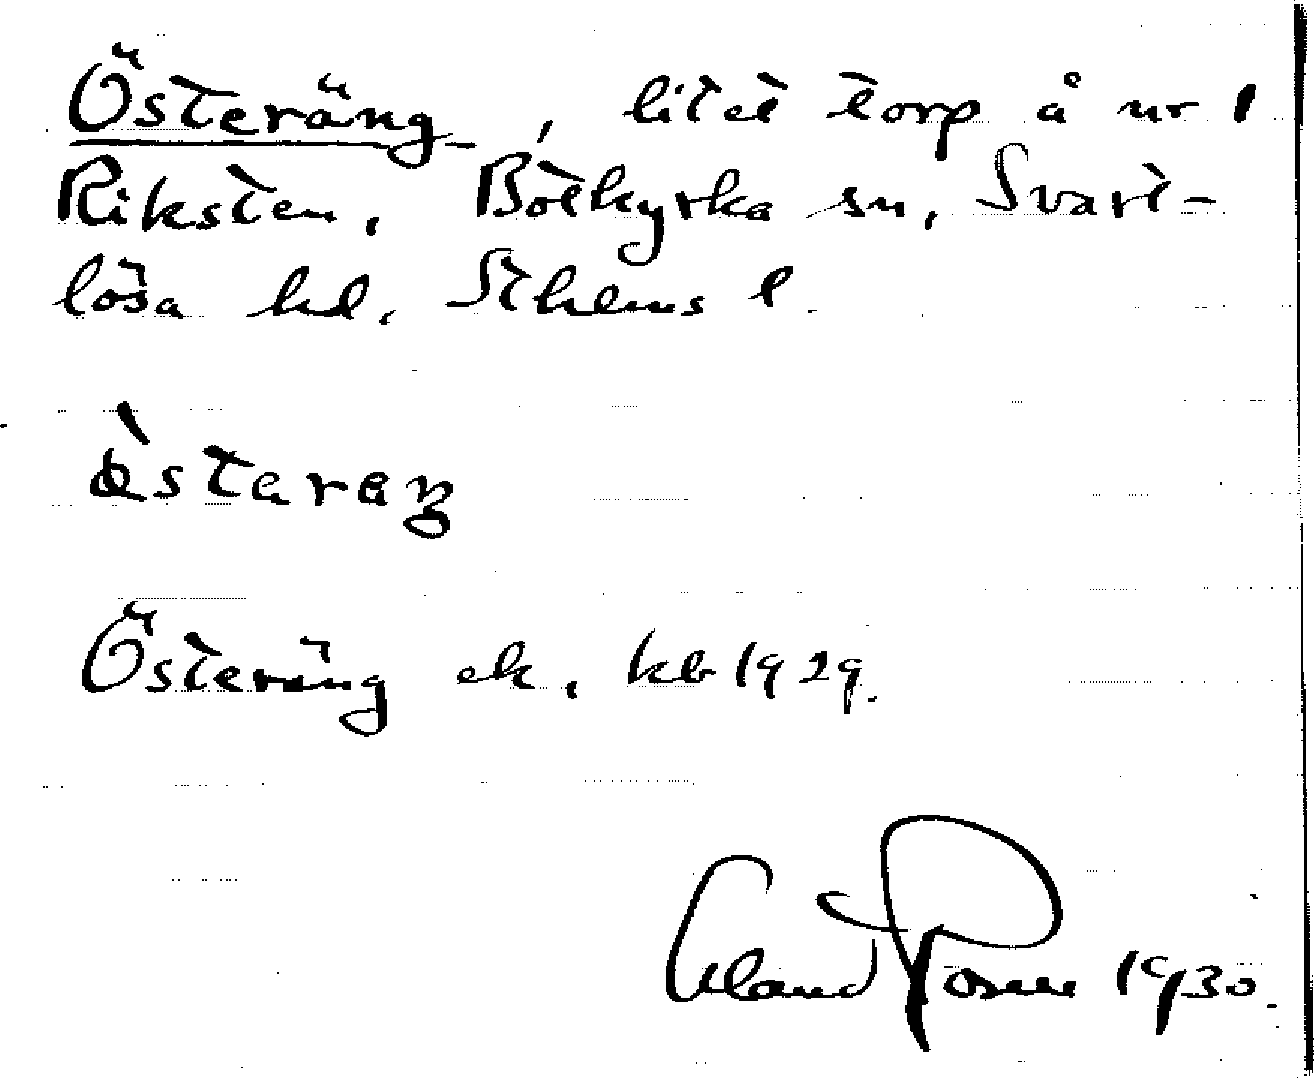 Österäng, litet torp å nr 1
Riksten, Botkyrka sn, Svart-
lösa hd, Sthlms l
Österäng ek, kb 1929.
Rosen 1930.